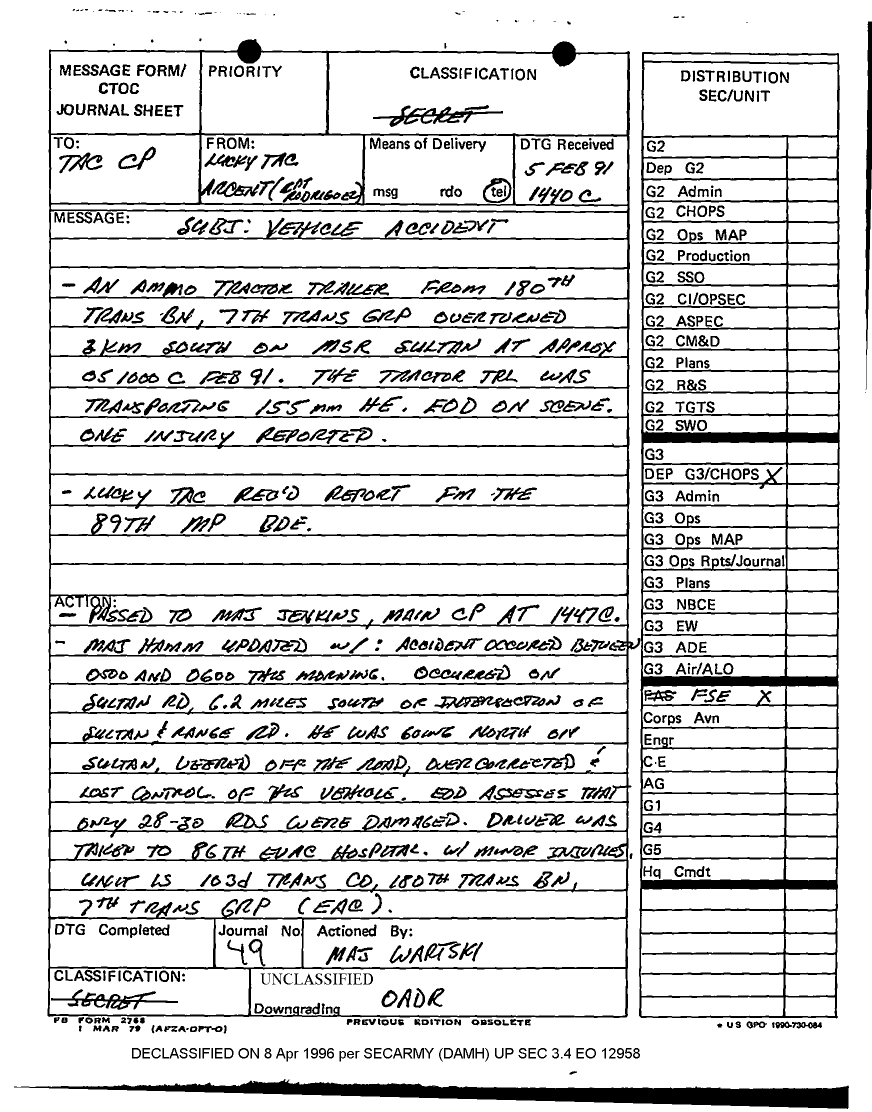 MESSAGE FORM/
CTOC
JOURNAL SHEET
PRIORITY
CLASSIFICATION
SECRET
TO:
TAC CP
FROM:
LUCKY TAC
ARCENT (CPT RODRIGUEZ)
Means of Delivery
msg rdo tel
DTG Received
5 FEB 91
1440 C
MESSAGE:
SUBJ: VEHICLE ACCIDENT
- AN AMMO TRACTOR TRAILER FROM 180TH
TRANS BN, 7TH TRANS GRP OVERTURNED
3 KM SOUTH ON MSR SULTAN AT APPROX
051000 C FEB 91. THE TRACTOR TRL WAS
TRANSPORTING 155 mm HE. EOD ON SCENE.
ONE INJURY REPORTED.
- LUCKY TAC REC'D REPORT FM THE
89TH MP BDE.
ACTION:
- PASSED TO MAJ JENKINS, MAIN CP AT 1447C.
- MAJ HAMM UPDATED w/: ACCIDENT OCCURED BETWEEN
0500 AND 0600 THIS MORNING. OCCURRED ON
SULTAN RD, 6.2 MILES SOUTH OF INTERSECTION OF
SULTAN & RANGE RD. HE WAS GOING NORTH ON
SULTAN, VEERED OFF THE ROAD, OVER CORRECTED &
LOST CONTROL. OF HIS VEHICLE. EOD ASSESSES THAT
ONLY 28-30 RDS WERE DAMAGED. DRIVER WAS
TAKEN TO 86TH EVAC HOSPITAL. W/ MINOR INJURIES.
UNIT IS 103d TRANS CO, 180TH TRANS BN,
7TH TRANS GRP (EAC).
DTG Completed
Journal No
49
Actioned By:
MAJ WARTSKI
CLASSIFICATION:
SECRET
UNCLASSIFIED
Downgrading OADR
FB FORM 2768
1 MAR 79 (AFZA-DPT-O)
PREVIOUS EDITION OBSOLETE
DISTRIBUTION
SEC/UNIT
G2
Dep G2
G2 Admin
G2 CHOPS
G2 Ops MAP
G2 Production
G2 SSO
G2 CI/OPSEC
G2 ASPEC
G2 CM&D
G2 Plans
G2 R&S
G2 TGTS
G2 SWO
G3
DEP G3/CHOPS X
G3 Admin
G3 Ops
G3 Ops MAP
G3 Ops Rpts/Journal
G3 Plans
G3 NBCE
G3 EW
G3 ADE
G3 Air/ALO
FAS FSE X
Corps Avn
Engr
C-E
AG
G1
G4
G5
Hq Cmdt
* U S GPO 1990-730-084
DECLASSIFIED ON 8 Apr 1996 per SECARMY (DAMH) UP SEC 3.4 EO 12958